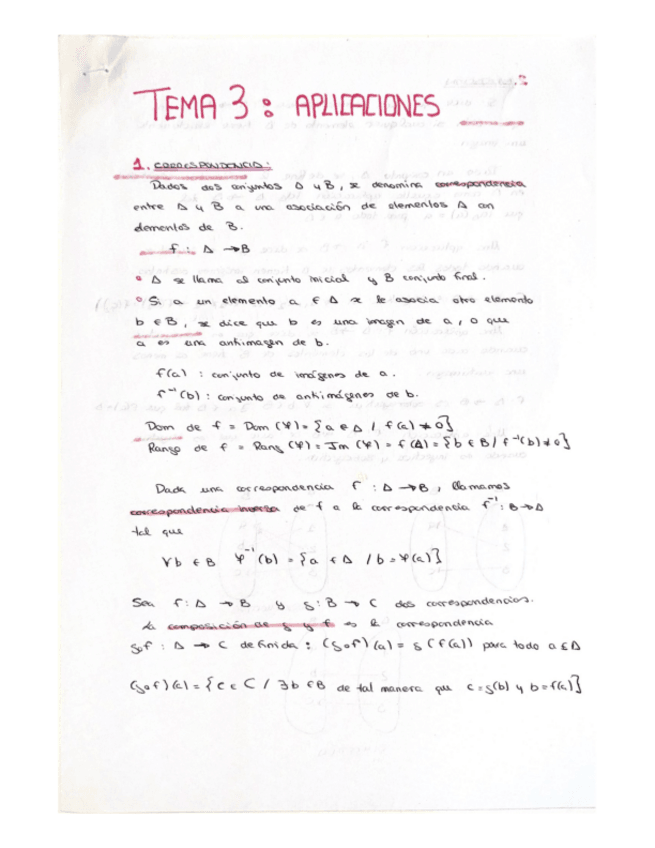 TEMA 3 : APLICACIONES
1. CORRESPONDENCIA:
Dados dos conjuntos A y B, se denomina correspondencia
entre A y B a una asociación de elementos A con
elementos de B.
f : A → B
• A se llama al conjunto inicial y B conjunto final.
• Si a un elemento a ∈ A se le asocia otro elemento
b ∈ B, se dice que b es una imagen de a, o que
a es una antimagen de b.
f(a) : conjunto de imágenes de a.
f⁻¹(b) : conjunto de antimágenes de b.
Dom de f = Dom (φ) = {a ∈ A / f(a) ≠ 0}
Rango de f = Rang (φ) = Im (φ) = f(A) = {b ∈ B / f⁻¹(b) ≠ 0}
Dada una correspondencia f : A → B, llamamos
correspondencia inversa de f a la correspondencia f⁻¹ : B → A
tal que
∀b ∈ B φ⁻¹(b) = {a ∈ A / b = φ(a)}
Sea f : A → B y g : B → C dos correspondencias.
La composición de g y f es la correspondencia
gof : A → C definida : (gof)(a) = g(f(a)) para todo a ∈ A
(gof)(a) = {c ∈ C / ∃b ∈ B de tal manera que c = g(b) y b = f(a)}